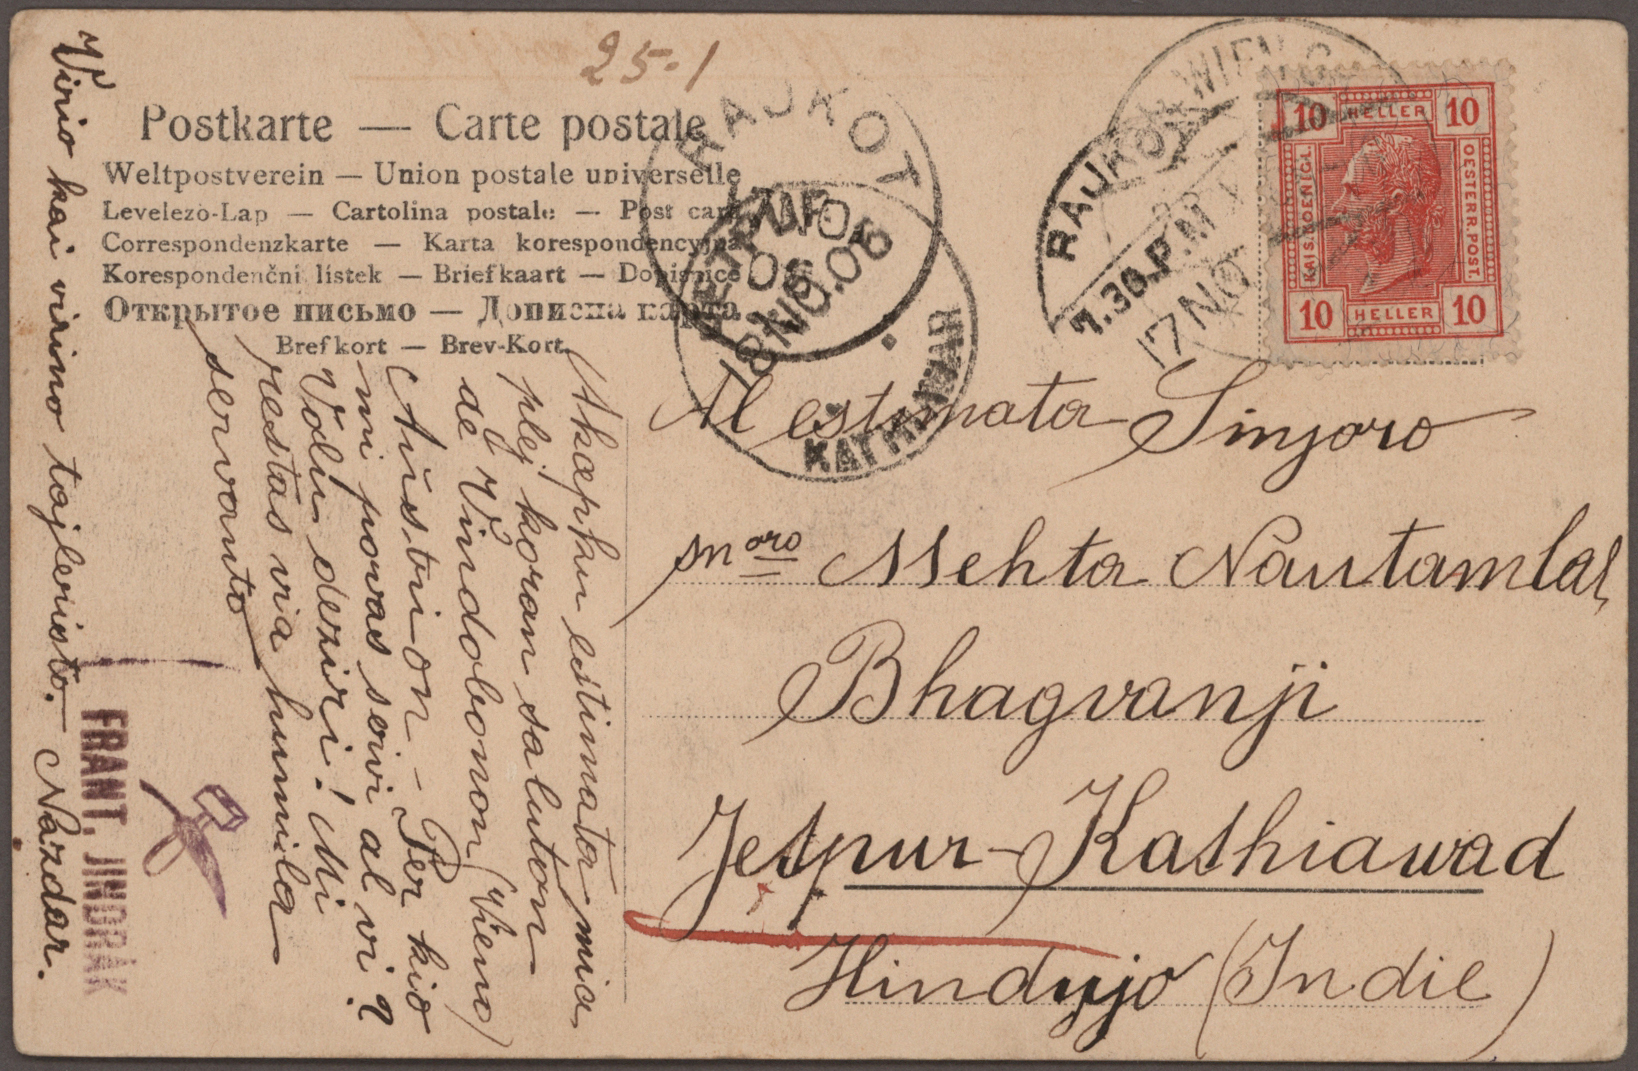 25.1
Postkarte — Carte postale
Weltpostverein — Union postale universelle
Levelező-Lap — Cartolina postale — Post card
Correspondenzkarte — Karta korespondencyjna
Korespondenční lístek — Briefkaart — Dopisnice
Открытое письмо — Дописна карта
Brefkort — Brev-Kort
RAJKOT
NO.
06
JETPUR
18 NO. 06
KATHIAWAR
WIEN
RAJKOT
7.30.P.M
17 NO
10 HELLER 10
KAIS. KOENIGL.
OESTERR. POST.
10 HELLER 10
Al estimata Sinjoro
sn oro Mehta Nautamlal
Bhagvanji
Jetpur-Kathiawad
Hindujo (Indie)
Akceptu estimata mia,
plej koran saluton
de Vindobonon (Vieno)
Aŭstrion - Per kio
mi povas servi al vi?
Volu deziri! Mi
restas via humila
servanto
Virio kai virino tajloristo. Nazdar.
FRANT. JINDRÁK